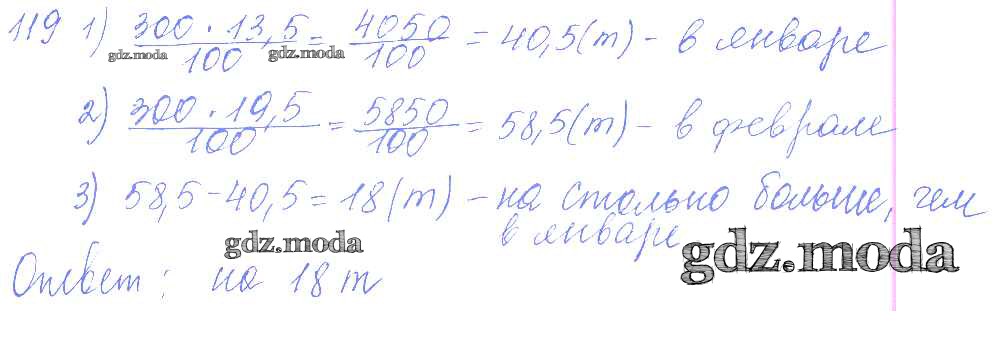 119 1) 300 · 13,5 / 100 = 4050 / 100 = 40,5 (т) – в январе
gdz.moda gdz.moda
2) 300 · 19,5 / 100 = 5850 / 100 = 58,5 (т) – в феврале
3) 58,5 – 40,5 = 18 (т) – на столько больше, чем
в январе
gdz.moda
gdz.moda
Ответ: на 18 т